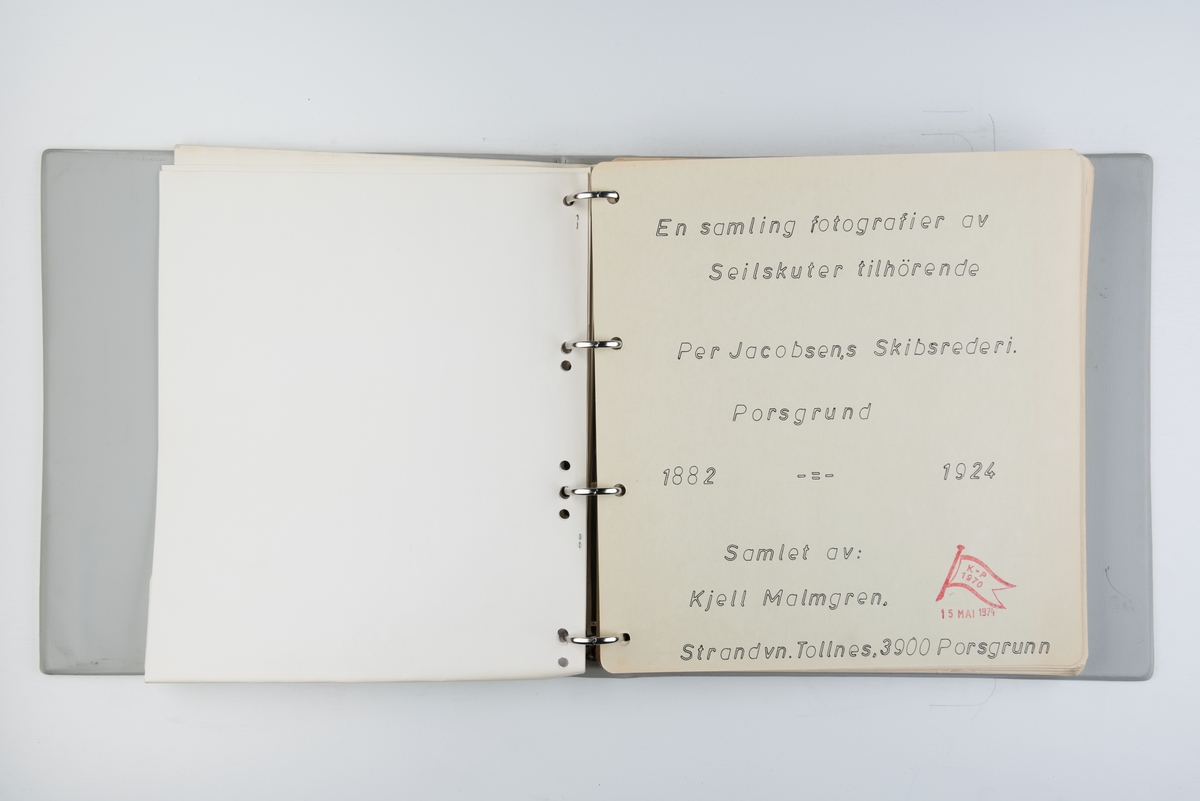 En samling fotografier av
Seilskuter tilhörende
Per Jacobsen,s Skibsrederi.
Porsgrund
1882 -=- 1924
Samlet av:
Kjell Malmgren.
K-P
1970
15 MAI 1974
Strandvn.Tollnes,3900 Porsgrunn